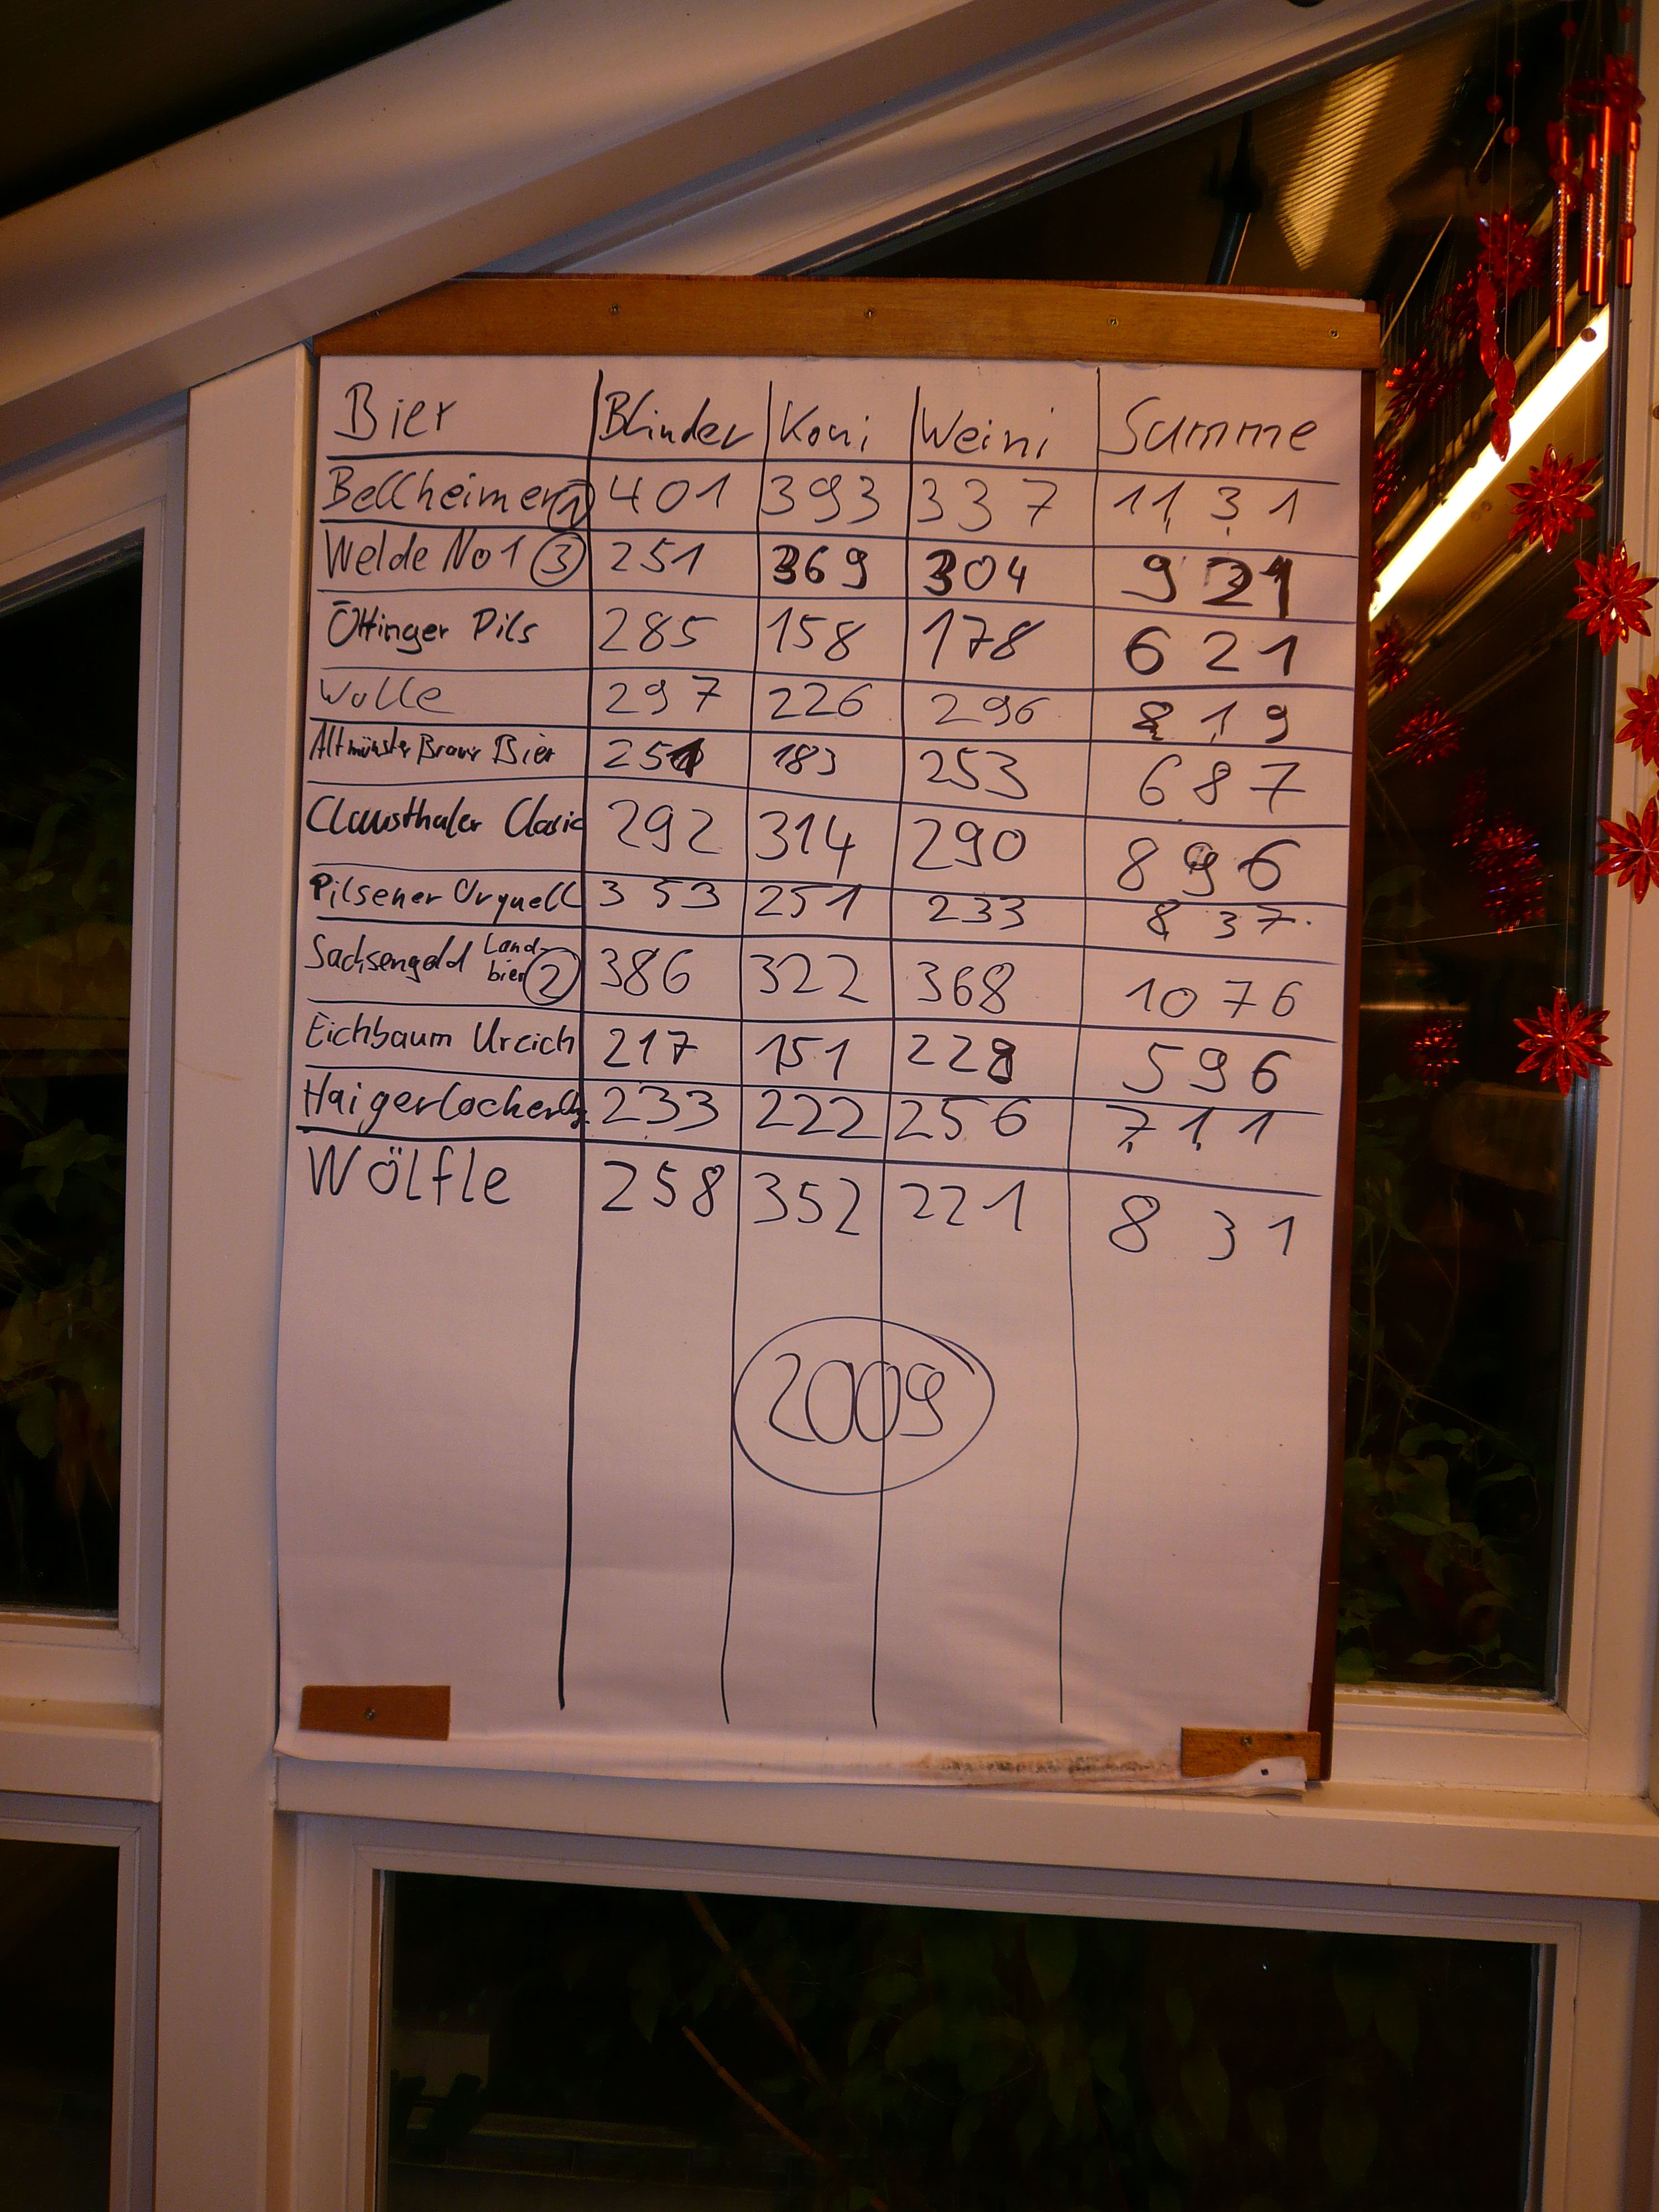 Bier Blinder Koni Weini Summe
Bellheimer ① 401 393 337 1131
Welde No 1 ③ 251 369 304 921
Öttinger Pils 285 158 178 621
Wulle 297 226 296 819
Altmünster Brauer Bier 251 183 253 687
Clausthaler Clasic 292 314 290 896
Pilsener Urquell 353 251 233 837
Sachsengold Land-
bier ② 386 322 368 1076
Eichbaum Ureich 217 151 228 596
Haigerlocher 233 222 256 711
Wölfle 258 352 221 831
2009